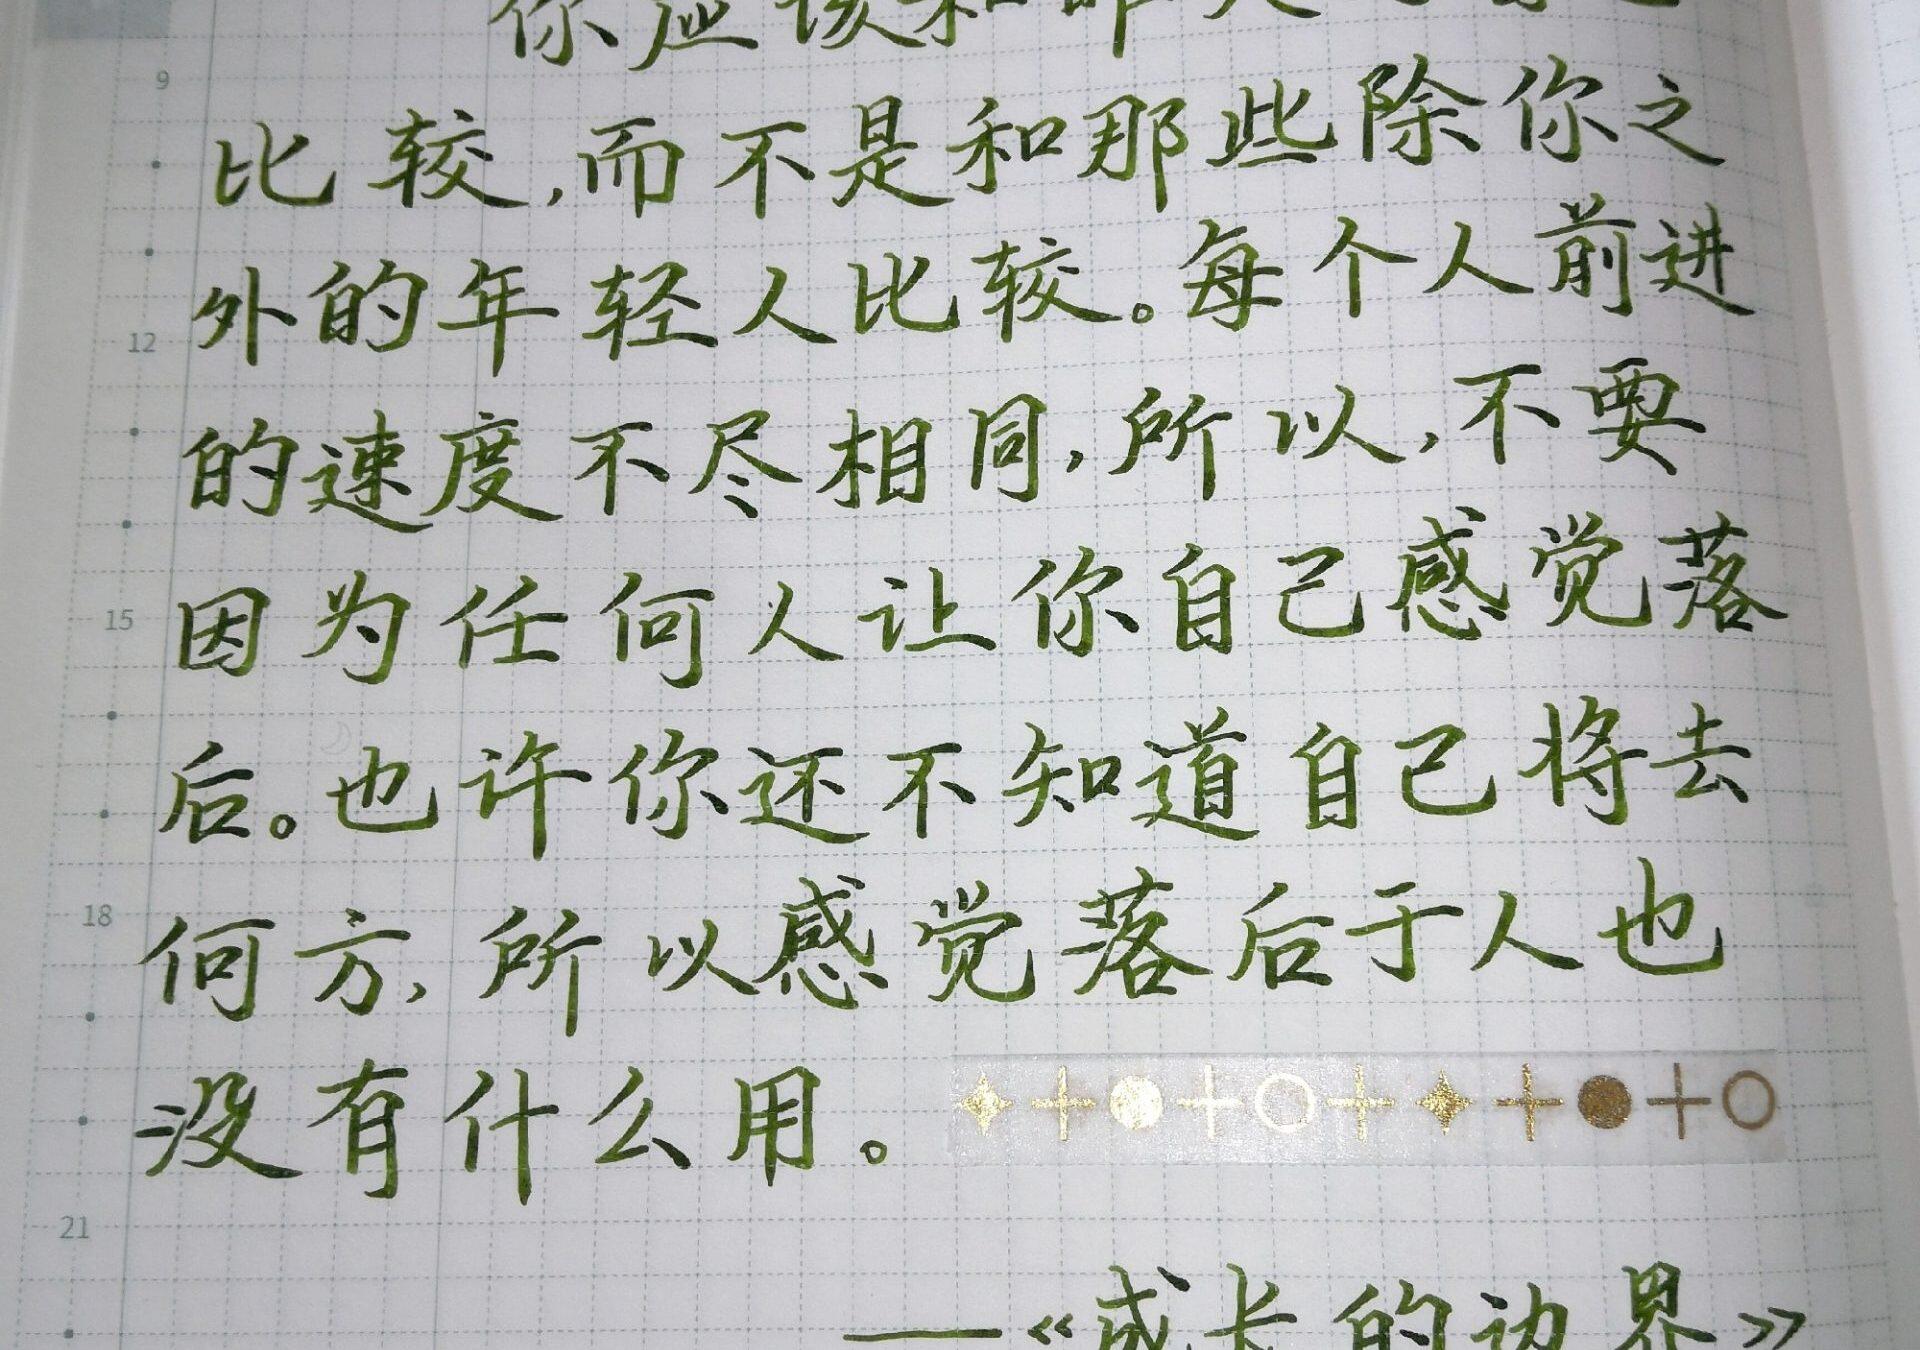 你应该和昨天的自己
比较,而不是和那些除你之
9
外的年轻人比较。每个人前进
12
的速度不尽相同,所以,不要
因为任何人让你自己感觉落
15
后。也许你还不知道自己将去
何方,所以感觉落后于人也
18
没有什么用。
21
——《成长的边界》